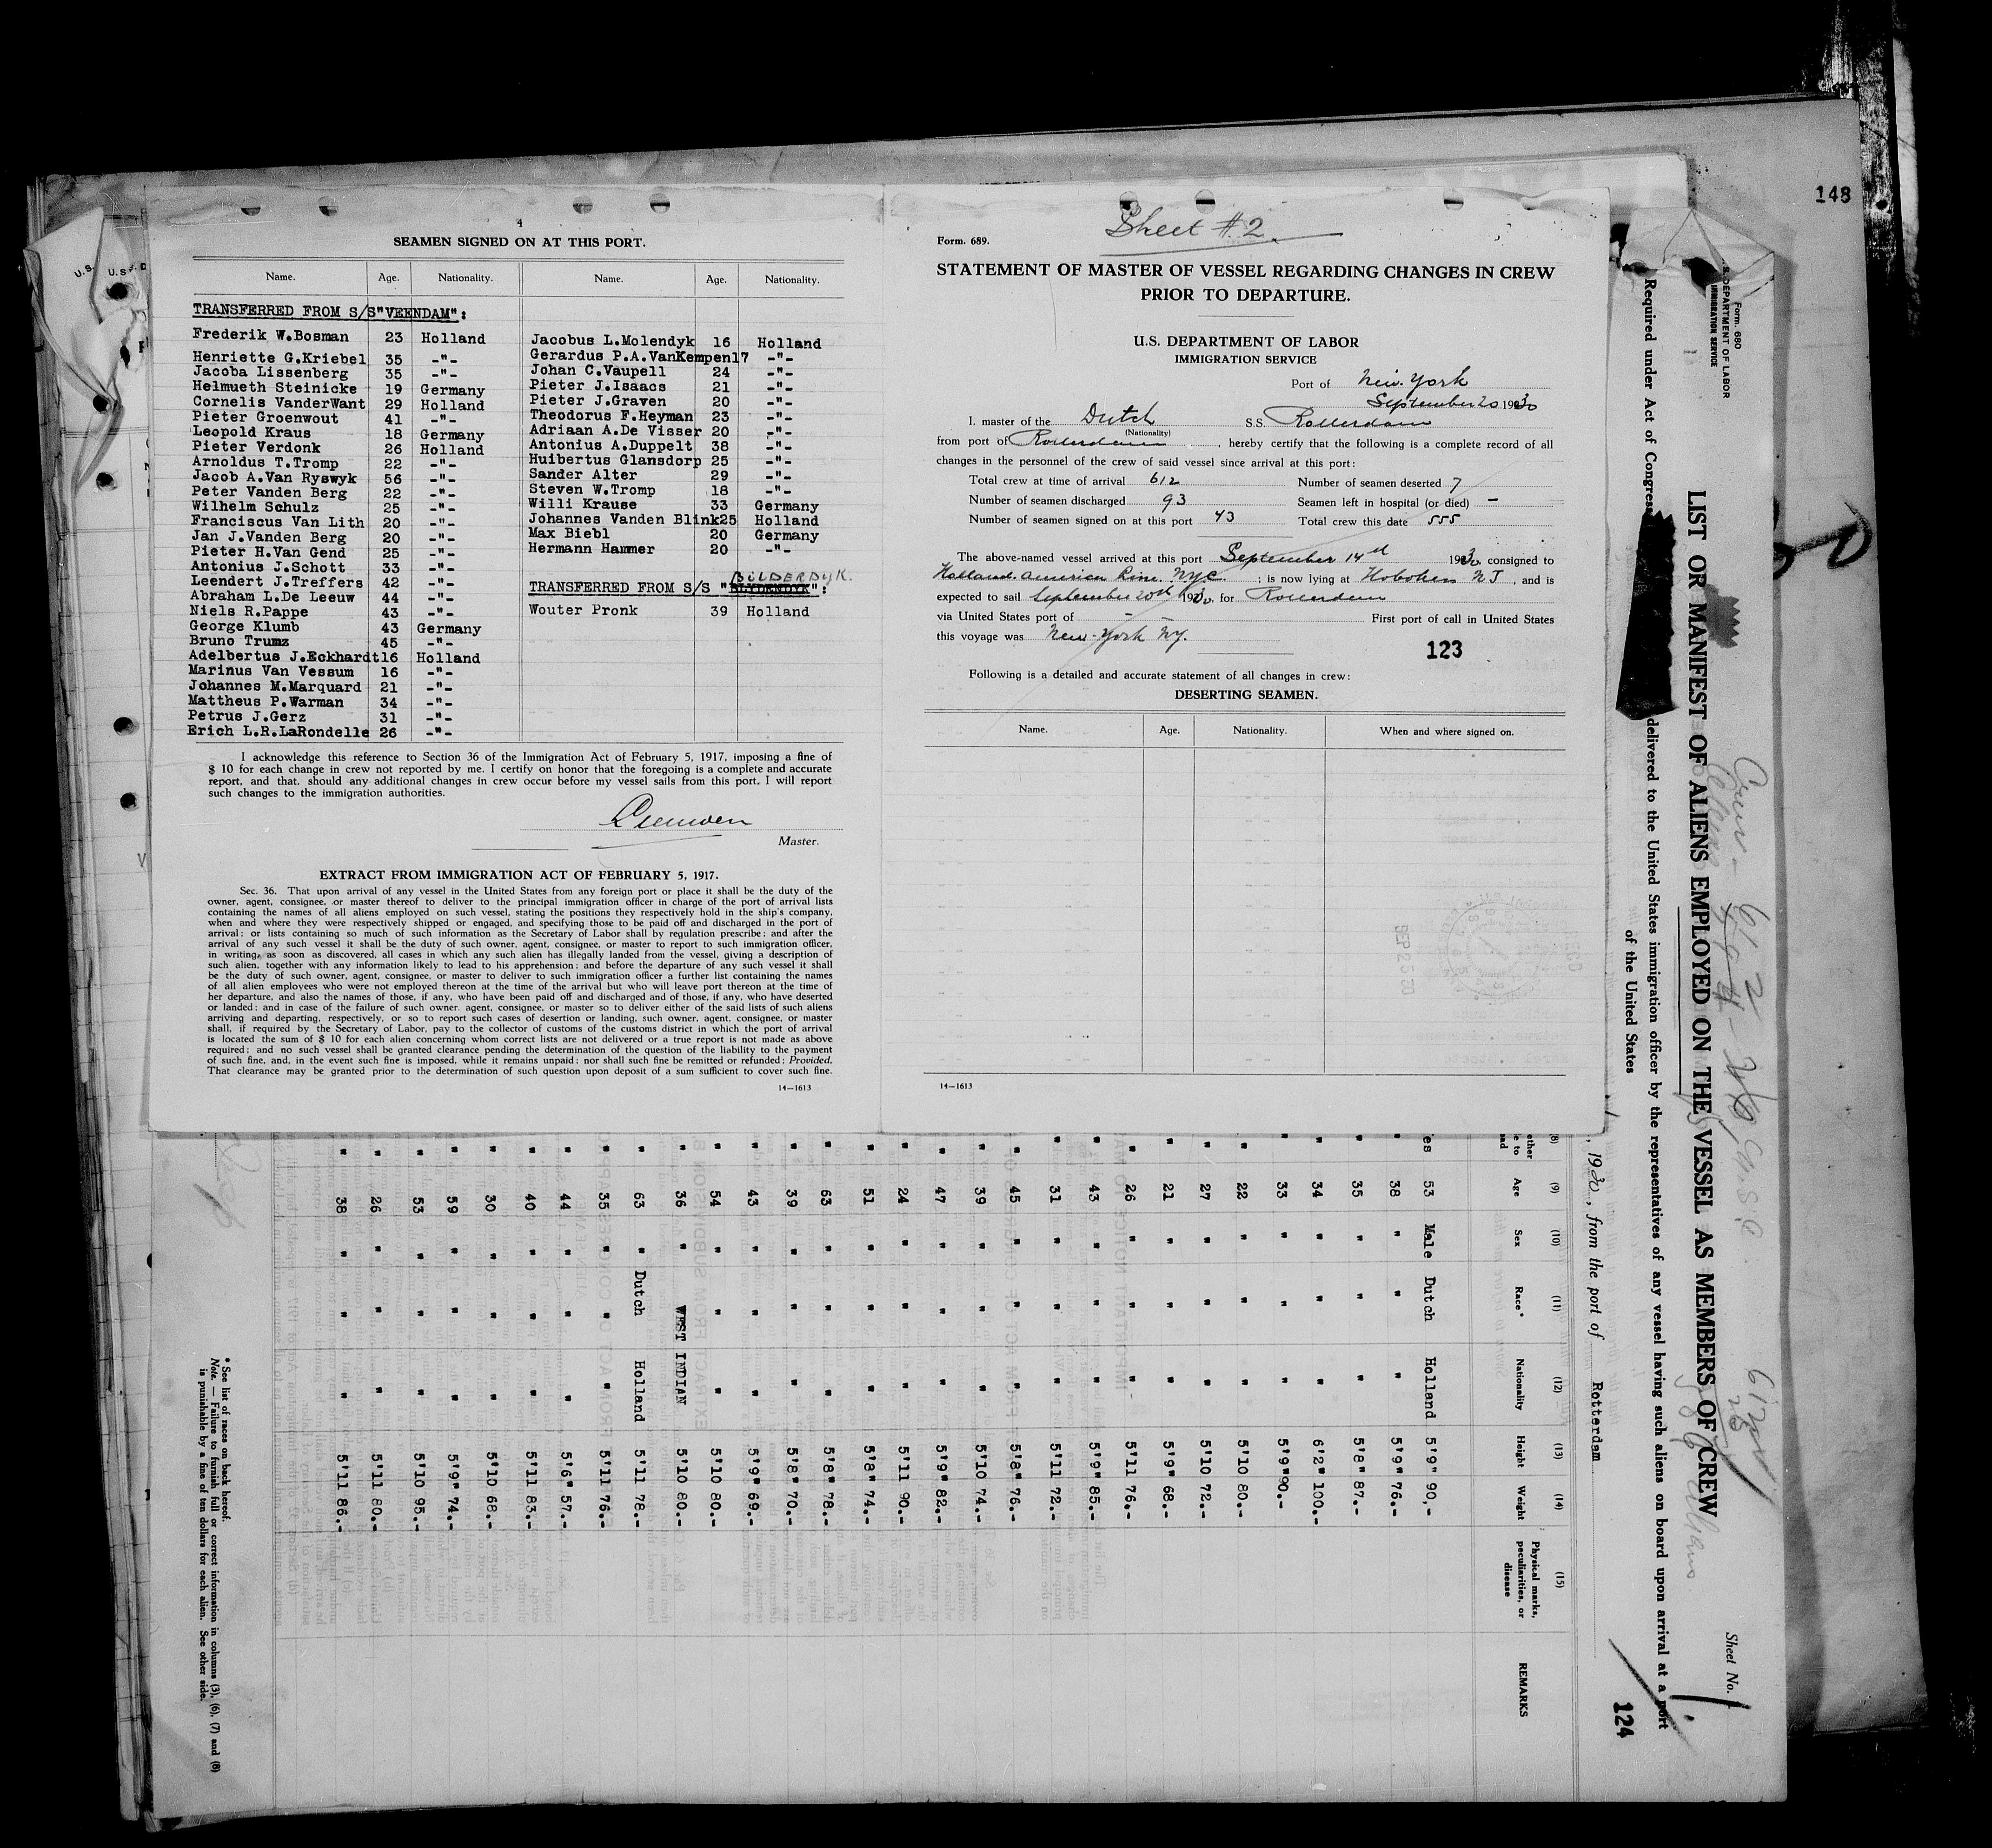 148
4
SEAMEN SIGNED ON AT THIS PORT.
Name. Age. Nationality. Name. Age. Nationality.
TRANSFERRED FROM S/S"VEENDAM":
Frederik W.Bosman 23 Holland
Henriette G.Kriebel 35 -"-
Jacoba Lissenberg 35 -"-
Helmueth Steinicke 19 Germany
Cornelis VanderWant 29 Holland
Pieter Groenwout 41 -"-
Leopold Kraus 18 Germany
Pieter Verdonk 26 Holland
Arnoldus T.Tromp 22 -"-
Jacob A.Van Ryswyk 56 -"-
Peter Vanden Berg 22 -"-
Wilhelm Schulz 25 -"-
Franciscus Van Lith 20 -"-
Jan J.Vanden Berg 20 -"-
Pieter H.Van Gend 25 -"-
Antonius J.Schott 33 -"-
Leendert J.Treffers 42 -"-
Abraham L.De Leeuw 44 -"-
Niels R.Pappe 43 -"-
George Klumb 43 Germany
Bruno Trumz 45 -"-
Adelbertus J.Eckhardt16 Holland
Marinus Van Vessum 16 -"-
Johannes M.Marquard 21 -"-
Mattheus P.Warman 34 -"-
Petrus J.Gerz 31 -"-
Erich L.R.LaRondelle 26 -"-
Jacobus L.Molendyk 16 Holland
Gerardus P.A.VanKempen17 -"-
Johan C.Vaupell 24 -"-
Pieter J.Isaacs 21 -"-
Pieter J.Graven 20 -"-
Theodorus F.Heyman 23 -"-
Adriaan A.De Visser 20 -"-
Antonius A.Duppelt 38 -"-
Huibertus Glansdorp 25 -"-
Sander Alter 29 -"-
Steven W.Tromp 18 -"-
Willi Krause 33 Germany
Johannes Vanden Blink25 Holland
Max Biebl 20 Germany
Hermann Hammer 20 -"-
BILDERDYK.
TRANSFERRED FROM S/S "BLYDENDYK":
Wouter Pronk 39 Holland
I acknowledge this reference to Section 36 of the Immigration Act of February 5, 1917, imposing a fine of
$ 10 for each change in crew not reported by me. I certify on honor that the foregoing is a complete and accurate
report, and that, should any additional changes in crew occur before my vessel sails from this port, I will report
such changes to the immigration authorities.
Master.
EXTRACT FROM IMMIGRATION ACT OF FEBRUARY 5, 1917.
Sec. 36. That upon arrival of any vessel in the United States from any foreign port or place it shall be the duty of the
owner, agent, consignee, or master thereof to deliver to the principal immigration officer in charge of the port of arrival lists
containing the names of all aliens employed on such vessel, stating the positions they respectively hold in the ship's company,
when and where they were respectively shipped or engaged, and specifying those to be paid off and discharged in the port of
arrival; or lists containing so much of such information as the Secretary of Labor shall by regulation prescribe; and after the
arrival of any such vessel it shall be the duty of such owner, agent, consignee, or master to report to such immigration officer,
in writing, as soon as discovered, all cases in which any such alien has illegally landed from the vessel, giving a description of
such alien, together with any information likely to lead to his apprehension; and before the departure of any such vessel it shall
be the duty of such owner, agent, consignee, or master to deliver to such immigration officer a further list containing the names
of all alien employees who were not employed thereon at the time of the arrival but who will leave port thereon at the time of
her departure, and also the names of those, if any, who have been paid off and discharged and of those, if any, who have deserted
or landed; and in case of the failure of such owner, agent, consignee, or master so to deliver either of the said lists of such aliens
arriving and departing, respectively, or so to report such cases of desertion or landing, such owner, agent, consignee, or master
shall, if required by the Secretary of Labor, pay to the collector of customs of the customs district in which the port of arrival
is located the sum of $ 10 for each alien concerning whom correct lists are not delivered or a true report is not made as above
required; and no such vessel shall be granted clearance pending the determination of the question of the liability to the payment
of such fine, and, in the event such fine is imposed, while it remains unpaid; nor shall such fine be remitted or refunded; Provided,
That clearance may be granted prior to the determination of such question upon deposit of a sum sufficient to cover such fine.
14—1613
Sheet # 2.
Form. 689.
STATEMENT OF MASTER OF VESSEL REGARDING CHANGES IN CREW
PRIOR TO DEPARTURE.
U.S. DEPARTMENT OF LABOR
IMMIGRATION SERVICE
Port of New. York
September 20 1930
I. master of the Dutch S.S. Rotterdam
(Nationality)
from port of Rotterdam, hereby certify that the following is a complete record of all
changes in the personnel of the crew of said vessel since arrival at this port:
Total crew at time of arrival 612 Number of seamen deserted 7
Number of seamen discharged 93 Seamen left in hospital (or died) —
Number of seamen signed on at this port 43 Total crew this date 555
The above-named vessel arrived at this port September 14th 1930 consigned to
Holland. america Line. NYC. ; is now lying at Hoboken N J , and is
expected to sail September 20th 1930. for Rotterdam
via United States port of — First port of call in United States
this voyage was New-York NY.
123
Following is a detailed and accurate statement of all changes in crew:
DESERTING SEAMEN.
Name. Age. Nationality. When and where signed on.
SEP 25 30
14—1613
Form. 680
U.S. DEPARTMENT OF LABOR
IMMIGRATION SERVICE
Sheet No. 1.
Crew - 612
LIST OR MANIFEST OF ALIENS EMPLOYED ON THE VESSEL AS MEMBERS OF CREW
Required under Act of Congress delivered to the United States immigration officer by the representatives of any vessel having such aliens on board upon arrival at a port
of the United States
124
, 1930, from the port of Rotterdam
(8) (9) (10) (11) (12) (13) (14) (15)
Age Sex Race* Nationality Height Weight Physical marks, peculiarities, or disease REMARKS
es 53 Male Dutch Holland 5'9" 90,-
" 38 " " " 5'9" 76.-
" 35 " " " 5'8" 87.-
" 34 " " " 6'2" 100.-
" 33 " " " 5'9"90.-
" 22 " " " 5'10 80.-
" 27 " " " 5'10 72.-
" 21 " " " 5'9" 68.-
" 26 " " " 5'11 76.-
" 43 " " " 5'9" 85.-
" 31 " " " 5'11 72.-
" 45 " " " 5'8" 76.-
" 39 " " " 5'10 74.-
" 47 " " " 5'9" 82.-
" 24 " " " 5'11 90.-
" 51 " " " 5'8" 74.-
" 63 " " " 5'8" 78.-
" 39 " " " 5'8" 70.-
" 43 " " " 5'9" 69.-
" 54 " " " 5'10 80.-
" 36 " WEST INDIAN 5'10 80.-
" 63 " Dutch Holland 5'11 78.-
" 35 " " " 5'11 76.-
" 44 " " " 5'6" 57.-
" 40 " " " 5'11 83.-
" 30 " " " 5'10 68.-
" 59 " " " 5'9" 74.-
" 53 " " " 5'10 95.-
" 26 " " " 5'11 80.-
" 38 " " " 5'11 86.-
* See list of races on back hereof.
Note. — Failure to furnish full or correct information in columns (3), (6), (7) and (8)
is punishable by a fine of ten dollars for each alien. See other side.